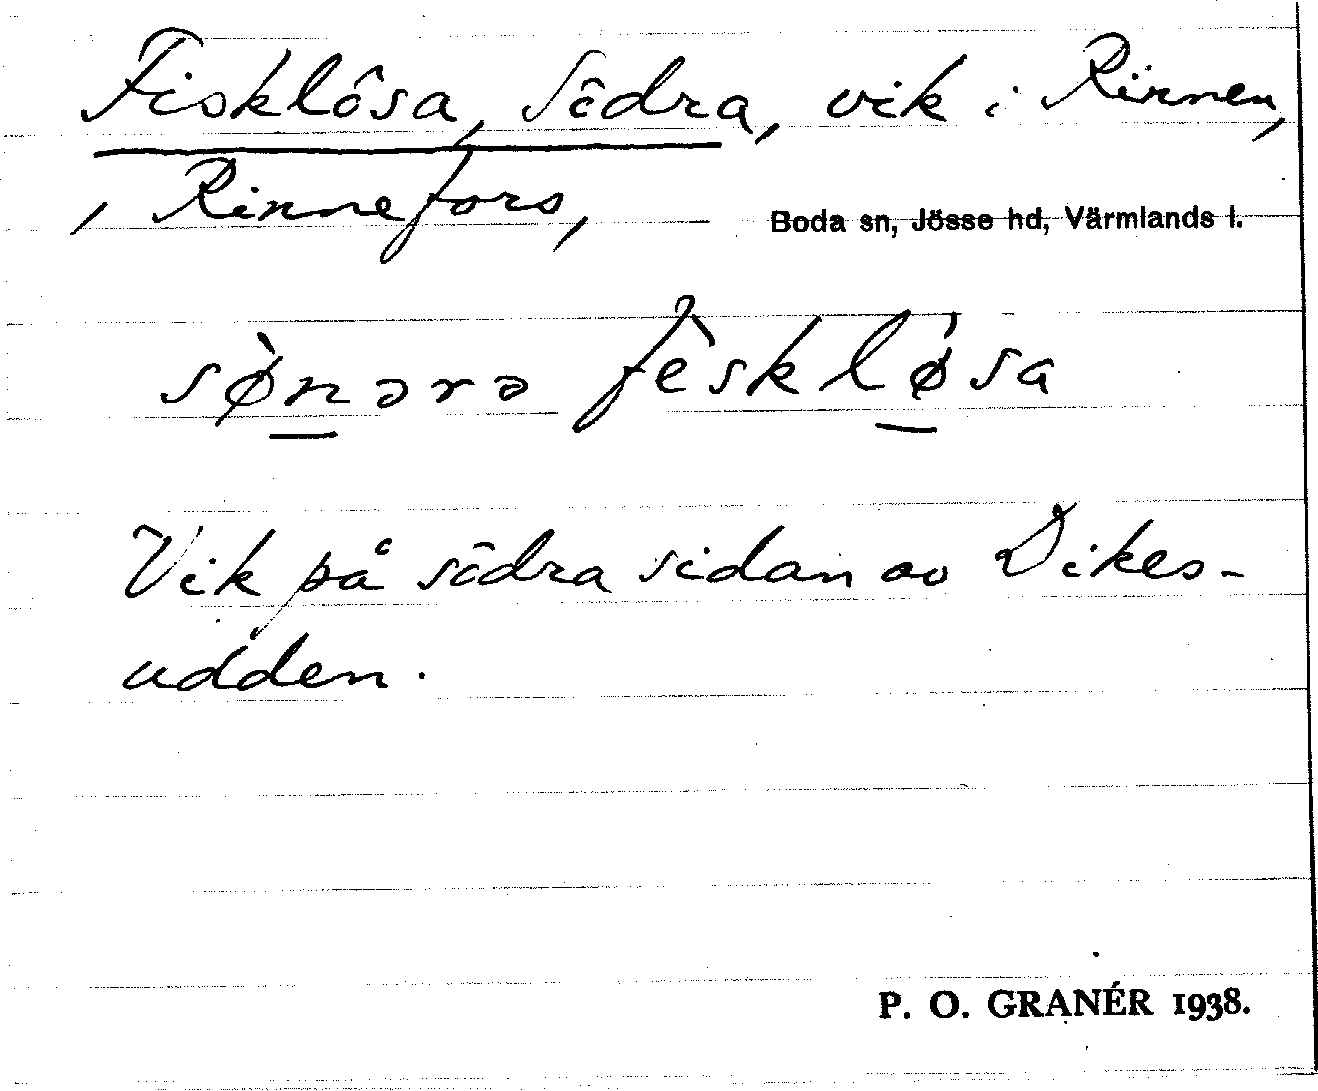 Fisklösa, Södra, vik i Rinnen,
, Rinnefors, Boda sn, Jösse hd, Värmlands l.
sø̀nərə fèskløsa
Vik på södra sidan av Dikes-
udden.
P. O. GRANÉR 1938.